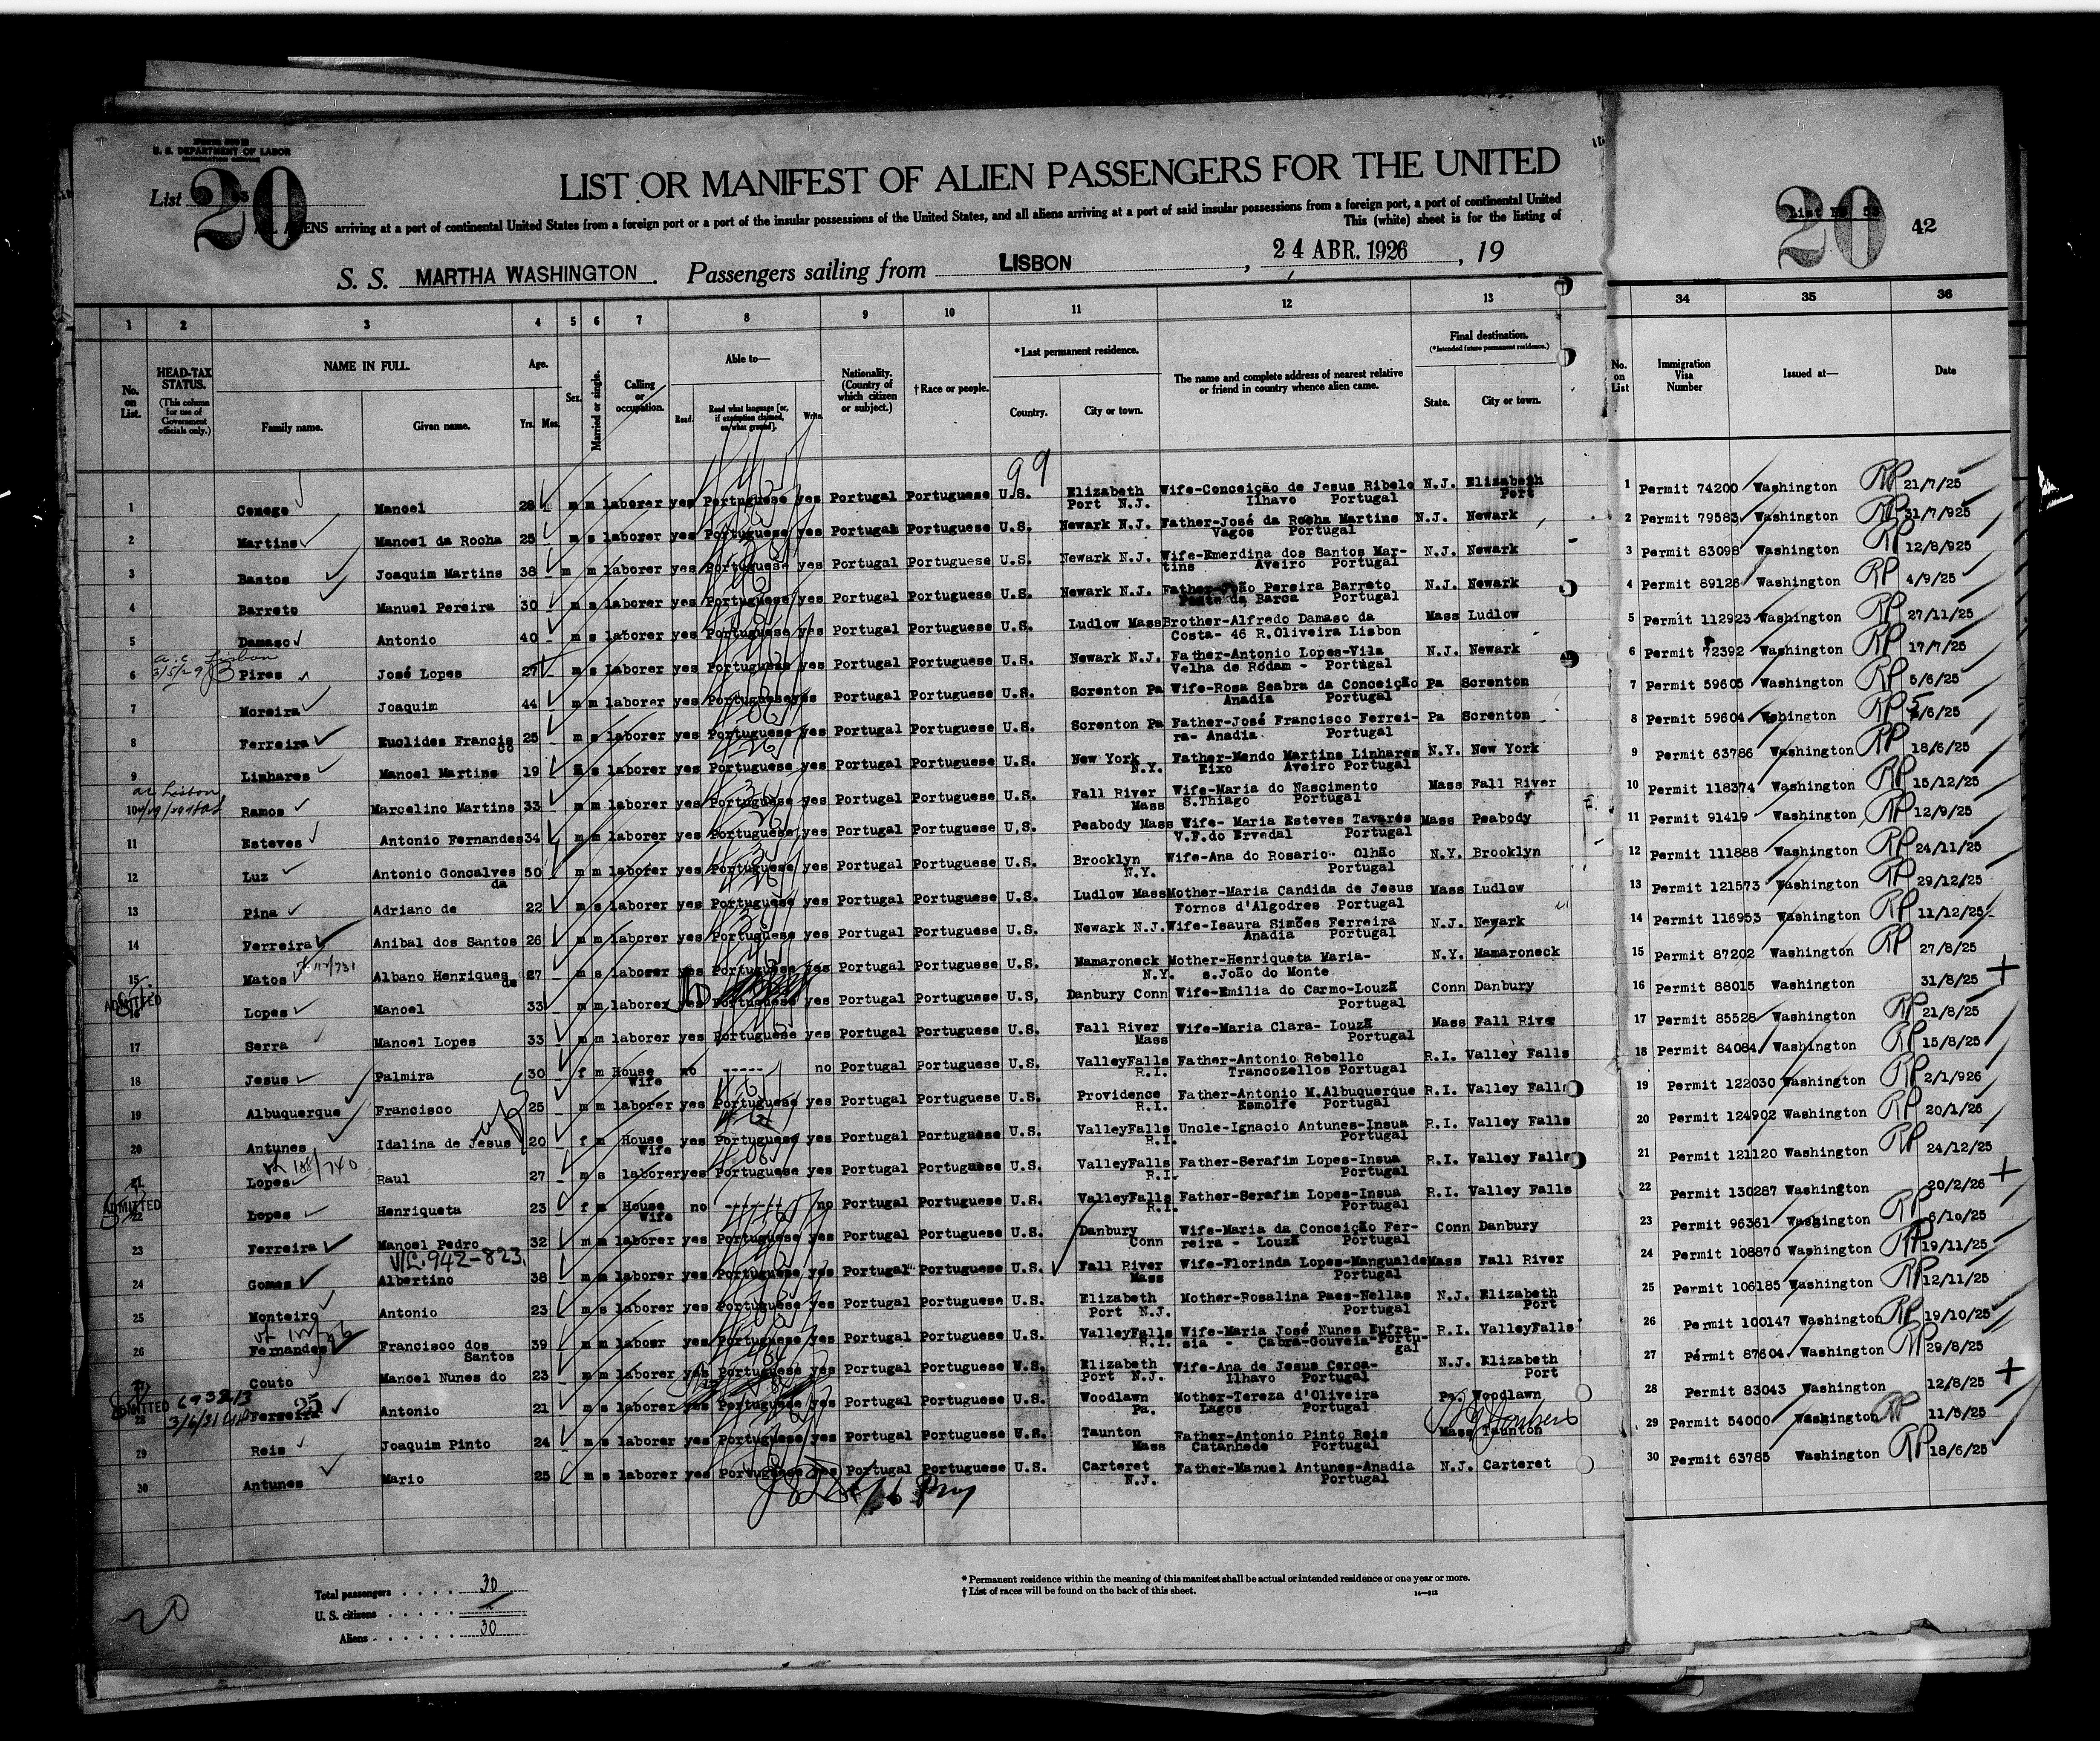 U. S. DEPARTMENT OF LABOR
List 20
LIST OR MANIFEST OF ALIEN PASSENGERS FOR THE UNITED
ALIENS arriving at a port of continental United States from a foreign port or a port of the insular possessions of the United States, and all aliens arriving at a port of said insular possessions from a foreign port, a port of continental United
This (white) sheet is for the listing of
S. S. MARTHA WASHINGTON. Passengers sailing from LISBON, 24 ABR. 1926, 19
20 42
1 2 3 4 5 6 7 8 9 10 11 12 13 34 35 36
No. on List. HEAD-TAX STATUS. (This column for use of Government officials only.) NAME IN FULL. Family name. Given name. Age. Yrs. Mos. Sex. Married or single. Calling or occupation. Able to— Read. Read what language [or, if exemption claimed, on what ground]. Write. Nationality. (Country of which citizen or subject.) †Race or people. *Last permanent residence. Country. City or town. The name and complete address of nearest relative or friend in country whence alien came. Final destination. (*Intended future permanent residence.) State. City or town. No. on List Immigration Visa Number Issued at— Date
99
1 Manoel 28 m m laborer yes Portuguese yes Portugal Portuguese U.S. Elizabeth Port N.J. Wife-Conceição de Jesus Ribelo Ilhavo Portugal N.J. Elizabeth Port 1 Permit 74200 Washington RP 21/7/25
2 Martins Manoel da Rocha 25 m s laborer yes Portuguese yes Portugal Portuguese U.S. Newark N.J. Father-José da Rocha Martins Vagos Portugal N.J. Newark 2 Permit 79583 Washington RP 31/7/925
3 Bastos Joaquim Martins 38 m m laborer yes Portuguese yes Portugal Portuguese U.S. Newark N.J. Wife-Emerdina dos Santos Martins Aveiro Portugal N.J. Newark 3 Permit 83098 Washington RP 12/8/925
4 Barreto Manuel Pereira 30 m s laborer yes Portuguese yes Portugal Portuguese U.S. Newark N.J. Pereira Barreto da Barca Portugal N.J. Newark 4 Permit 89126 Washington RP 4/9/25
5 Damaso Antonio 40 m s laborer yes Portuguese yes Portugal Portuguese U.S. Ludlow Mass Brother-Alfredo Damaso da Costa- 46 R.Oliveira Lisbon Mass Ludlow 5 Permit 112923 Washington RP 27/11/25
6 Pires José Lopes 27 m s Laborer yes Portuguese yes Portugal Portuguese U.S. Newark N.J. Father-Antonio Lopes-Vila Velha de Rodam - Portugal N.J. Newark 6 Permit 72392 Washington RP 17/7/25
7 Moreira Joaquim 44 m m laborer yes Portuguese yes Portugal Portuguese U.S. Screnton Pa Wife-Rosa Seabra da Conceição Anadia Portugal Pa Screnton 7 Permit 59605 Washington RP 5/6/25
8 Ferreira Euclides Francisco 25 m s laborer yes Portuguese yes Portugal Portuguese U.S. Screnton Pa Father-José Francisco Ferreira- Anadia Portugal Pa Screnton 8 Permit 59604 Wshington RP 5/6/25
9 Linhares Manoel Martins 19 s laborer yes Portuguese yes Portugal Portuguese U.S. New York N.Y. Father-Mendo Martins Linhares Eixo Aveiro Portugal N.Y. New York 9 Permit 63786 Washington RP 18/6/25
10 Ramos Marcelino Martins 33 m m laborer yes Portuguese yes Portugal Portuguese U.S. Fall River Mass Wife-Maria do Nascimento S.Thiago Portugal Mass Fall River 10 Permit 118374 Washington RP 15/12/25
11 Esteves Antonio Fernandes 34 m m laborer yes Portuguese yes Portugal Portuguese U.S. Peabody Mass Wife- Maria Esteves Tavares V.F.do Ervedal Portugal Mass Peabody 11 Permit 91419 Washington RP 12/9/25
12 Luz Antonio Goncalves da 50 m m laborer yes Portuguese yes Portugal Portuguese U.S. Brooklyn N.Y. Wife-Ana do Rosario- Olhão Portugal N.Y. Brooklyn 12 Permit 111888 Washington RP 24/11/25
13 Pina Adriano de 22 m s laborer yes Portuguese yes Portugal Portuguese U.S. Ludlow Mass Mother-Maria Candida de Jesus Fornos d'Algodres Portugal Mass Ludlow 13 Permit 121573 Washington RP 29/12/25
14 Ferreira Anibal dos Santos 26 m m laborer yes Portuguese yes Portugal Portuguese U.S. Newark N.J. Wife-Isaura Simões Ferreira Anadia Portugal N.J. Newark 14 Permit 116953 Washington RP 11/12/25
15 Matos Albano Henriques de 27 m s laborer yes Portuguese yes Portugal Portuguese U.S. Mamaroneck N.Y. Mother-Henriqueta Maria- s.João do Monte N.Y. Mamaroneck 15 Permit 87202 Washington RP 27/8/25
ADMITTED 16 Lopes Manoel 33 m m laborer yes Portuguese yes Portugal Portuguese U.S. Danbury Conn Wife-Emilia do Carmo-Louzã Portugal Conn Danbury 16 Permit 88015 Washington 31/8/25 +
17 Serra Manoel Lopes 33 m m laborer yes Portuguese yes Portugal Portuguese U.S. Fall River Mass Wife-Maria Clara- Louzã Portugal Mass Fall River 17 Permit 85528 Washington RP 21/8/25
18 Jesus Palmira 30 f m House Wife no ----- no Portugal Portuguese U.S. ValleyFalls R.I. Father-Antonio Rebello Trancozellos Portugal R.I. Valley Falls 18 Permit 84084 Washington RP 15/8/25
19 Albuquerque Francisco 25 m m laborer yes Portuguese yes Portugal Portuguese U.S. Providence R.I. Father-Antonio M.Albuquerque Esmolfe Portugal R.I. Valley Falls 19 Permit 122030 Washington RP 2/1/926
20 Antunes Idalina de Jesus 20 f m House Wife yes Portuguese yes Portugal Portuguese U.S. ValleyFalls R.I. Uncle-Ignacio Antunes-Insua Portugal R.I. Valley Falls 20 Permit 124902 Washington RP 20/1/26
21 Lopes Raul 27 m s laborer yes Portuguese yes Portugal Portuguese U.S. ValleyFalls R.I. Father-Serafim Lopes-Insua Portugal R.I. Valley Falls 21 Permit 121120 Washington RP 24/12/25
ADMITTED 22 Lopes Henriqueta 23 f m House Wife no ------ no Portugal Portuguese U.S. ValleyFalls R.I. Father-Serafim Lopes-Insua Portugal R.I. Valley Falls 22 Permit 130287 Washington 20/2/26 +
23 Ferreira Manoel Pedro 32 m m laborer yes Portuguese yes Portugal Portuguese U.S. Danbury Conn Wife-Maria da Conceição Ferreira - Louzã Portugal Conn Danbury 23 Permit 96361 Washington RP 6/10/25
942-823
24 Gomes Albertino 38 m m laborer yes Portuguese yes Portugal Portuguese U.S. Fall River Mass Wife-Florinda Lopes-Mangualde Portugal Mass Fall River 24 Permit 108870 Washington RP 19/11/25
25 Monteiro Antonio 23 m s laborer yes Portuguese yes Portugal Portuguese U.S. Elizabeth Port N.J. Mother-Rosalina Paes-Nellas Portugal N.J. Elizabeth Port 25 Permit 106185 Washington RP 12/11/25
26 Fernandes Francisco dos Santos 39 m m laborer yes Portuguese yes Portugal Portuguese U.S. ValleyFalls R.I. Wife-Maria José Nunes Eufrasia - Cabra-Gouveia-Portugal R.I. ValleyFalls 26 Permit 100147 Washington RP 19/10/25
27 Couto Manoel Nunes do 23 m m laborer yes Portuguese yes Portugal Portuguese U.S. Elizabeth Port N.J. Wife-Ana de Jesus Cerca- Ilhavo Portugal N.J. Elizabeth Port 27 Permit 87604 Washington RP 29/8/25
ADMITTED 28 Ferreira Antonio 21 m s laborer yes Portuguese yes Portugal Portuguese U.S. Woodlawn Pa. Mother-Tereza d'Oliveira Lagos Portugal Pa. Woodlawn 28 Permit 83043 Washington 12/8/25 +
29 Reis Joaquim Pinto 24 m s laborer yes Portuguese yes Portugal Portuguese U.S. Taunton Mass Father-Antonio Pinto Reis Catanhede Portugal Mass Taunton 29 Permit 54000 Washington RP 11/5/25
30 Antunes Mario 25 m s laborer yes Portuguese yes Portugal Portuguese U.S. Carteret N.J. Father-Manuel Antunes-Anadia Portugal N.J. Carteret 30 Permit 63785 Washington RP 18/6/25
Total passengers . . . . 30
U. S. citizens . . . . .
Aliens . . . . . . 30
20
* Permanent residence within the meaning of this manifest shall be actual or intended residence of one year or more.
† List of races will be found on the back of this sheet.